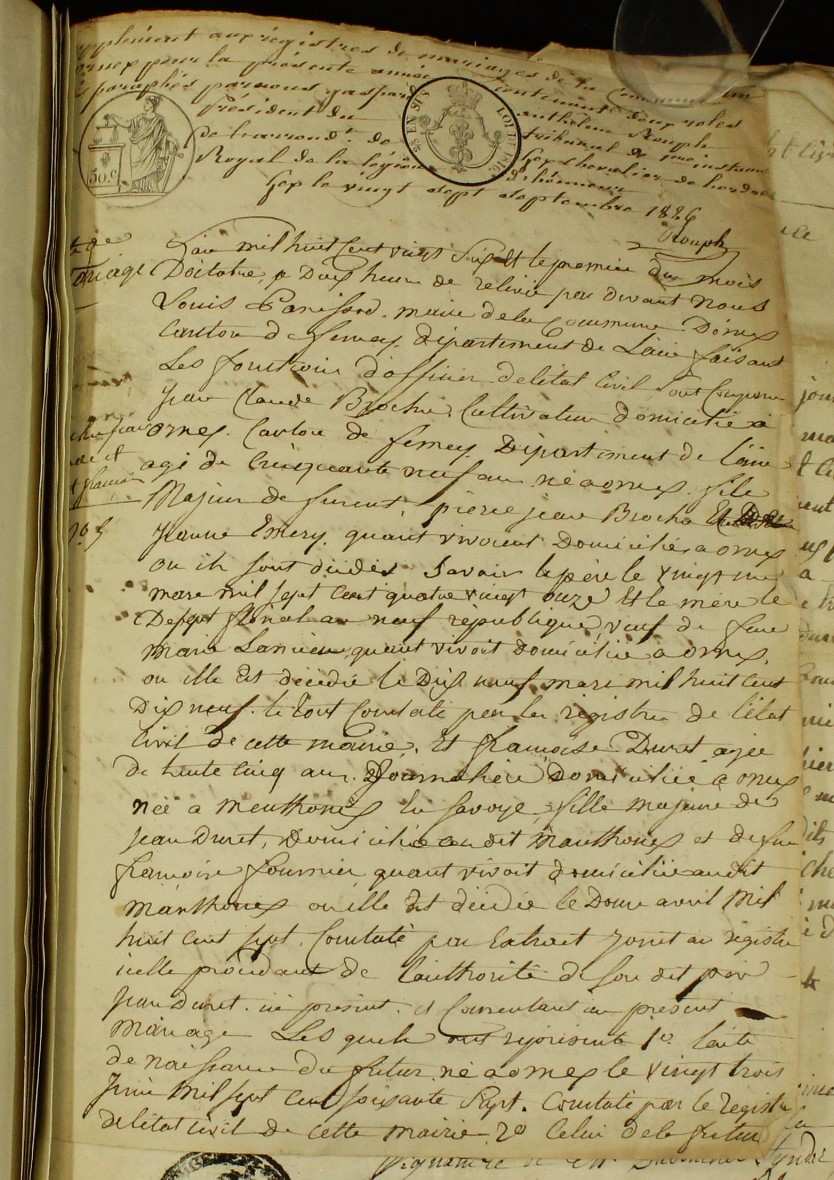 Supplément aux registres de mariages de la Commune
ornex pour la présente année contenant deux roles
paraphés par nous gaspard anthelme Rouph
Président du tribunal de 1ere instance
de l'arrond.t de Gex chevalier de l'ordre
Royal de la légion d'honneur
Gex le vingt sept septembre 1826
Rouph
50.C
mariage
L'an mil huit Cent vingt Six et le premier du mois
Doctobre, a Deux heure de relevée par divant nous
Louis Panissod, maire de la Commune Dornex
Canton de ferney Département de L'ain faisant
Les fonction d'officier de létat Civil sont Comparu
Jean Claude Brochu Cultivateur domicilié a
ornex. Canton de ferney Département de l'ain
agé de Cinquante neuf an né a ornex. fils
Majeur de furent pierre jean Brochu Et
Jeanne Emery quant vivoient Domiciliés a ornex
ou ils sont décédés Savoir le père le vingt un
mars mil sept Cent quatre vingt onze Et la mère le
Dix sept floréal an neuf république, veuf de feue
marie Lancieu, quant vivoit domiciliée a ornex,
ou ille Est décédée le Dix neuf mars mil huit cent
Dix neuf. le tout Constaté par les registre de L'état
Civil de cette mairie. Et françoise Duret agée
de trente Cinq ans. Journalière Domiciliée a ornex
née a menthonex En Savoye, fille majeure de
jean Duret, Domicilié au dit manthonex et de feue
françoise fournier quant vivoit domiciliée au dit
manthonex ou ille Est décédée le Douze avril Mil
huit cent sept. Constaté par Extrait joint au registre
icelle procédant de L'authorité de son dit père
Jean Duret. ici présent. et Consentant au présent
Mariage Les quels ont représenté 1er Lacte
de naissance du futur né a ornex le vingt trois
juin Mil sept Cent soixante Sept. Constaté par le registre
de létat Civil de cette mairie. 2o Celui de la future